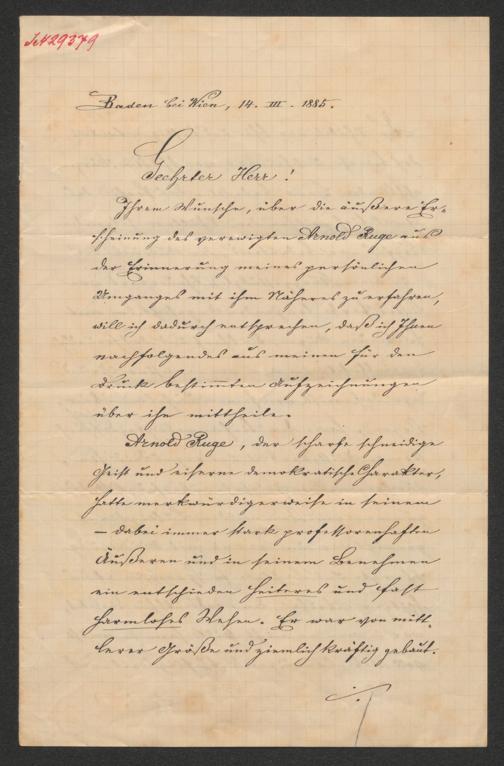 JN 29379
Baden bei Wien, 14. III. 1885.
Geehrter Herr!
Ihrem Wunsche, über die äußere Er-
scheinung des verewigten Arnold Ruge aus
der Erinnerung meines persönlichen
Umganges mit ihm Näheres zu erfahren,
will ich dadurch entsprechen, daß ich Ihnen
nachfolgendes aus meinen für den
Druck bestimmten Aufzeichnungen
über ihn mittheile.
Arnold Ruge, der scharfe schneidige
Geist und eiserne demokratische Charakter,
hatte merkwürdigerweise in seinem
– dabei immer stark professorenhaften
Äußeren und in seinem Benehmen
ein entschieden heiteres und fast
harmloses Wesen. Er war von mitt-
lerer Größe und ziemlich kräftig gebaut.